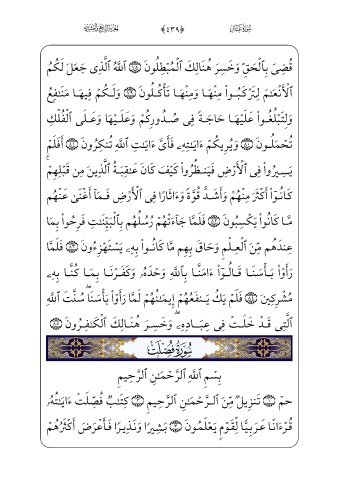 سُورَةُ غَافِرٍ ﴿٤٣٩﴾ الجزء الرابع والعشرون
قُضِىَ بِٱلْحَقِّ وَخَسِرَ هُنَالِكَ ٱلْمُبْطِلُونَ ۝ ٱللَّهُ ٱلَّذِى جَعَلَ لَكُمُ
ٱلْأَنْعَـٰمَ لِتَرْكَبُوا۟ مِنْهَا وَمِنْهَا تَأْكُلُونَ ۝ وَلَكُمْ فِيهَا مَنَـٰفِعُ
وَلِتَبْلُغُوا۟ عَلَيْهَا حَاجَةً فِى صُدُورِكُمْ وَعَلَيْهَا وَعَلَى ٱلْفُلْكِ
تُحْمَلُونَ ۝ وَيُرِيكُمْ ءَايَـٰتِهِۦ فَأَىَّ ءَايَـٰتِ ٱللَّهِ تُنكِرُونَ ۝ أَفَلَمْ
يَسِيرُوا۟ فِى ٱلْأَرْضِ فَيَنظُرُوا۟ كَيْفَ كَانَ عَـٰقِبَةُ ٱلَّذِينَ مِن قَبْلِهِمْ ۚ
كَانُوٓا۟ أَكْثَرَ مِنْهُمْ وَأَشَدَّ قُوَّةً وَءَاثَارًا فِى ٱلْأَرْضِ فَمَآ أَغْنَىٰ عَنْهُم
مَّا كَانُوا۟ يَكْسِبُونَ ۝ فَلَمَّا جَآءَتْهُمْ رُسُلُهُم بِٱلْبَيِّنَـٰتِ فَرِحُوا۟ بِمَا
عِندَهُم مِّنَ ٱلْعِلْمِ وَحَاقَ بِهِم مَّا كَانُوا۟ بِهِۦ يَسْتَهْزِءُونَ ۝ فَلَمَّا
رَأَوْا۟ بَأْسَنَا قَالُوٓا۟ ءَامَنَّا بِٱللَّهِ وَحْدَهُۥ وَكَفَرْنَا بِمَا كُنَّا بِهِۦ
مُشْرِكِينَ ۝ فَلَمْ يَكُ يَنفَعُهُمْ إِيمَـٰنُهُمْ لَمَّا رَأَوْا۟ بَأْسَنَا ۖ سُنَّتَ ٱللَّهِ
ٱلَّتِى قَدْ خَلَتْ فِى عِبَادِهِۦ ۖ وَخَسِرَ هُنَالِكَ ٱلْكَـٰفِرُونَ ۝
سُورَةُ فُصِّلَتْ
بِسْمِ ٱللَّهِ ٱلرَّحْمَـٰنِ ٱلرَّحِيمِ
حمٓ ۝ تَنزِيلٌ مِّنَ ٱلرَّحْمَـٰنِ ٱلرَّحِيمِ ۝ كِتَـٰبٌ فُصِّلَتْ ءَايَـٰتُهُۥ
قُرْءَانًا عَرَبِيًّا لِّقَوْمٍ يَعْلَمُونَ ۝ بَشِيرًا وَنَذِيرًا فَأَعْرَضَ أَكْثَرُهُمْ